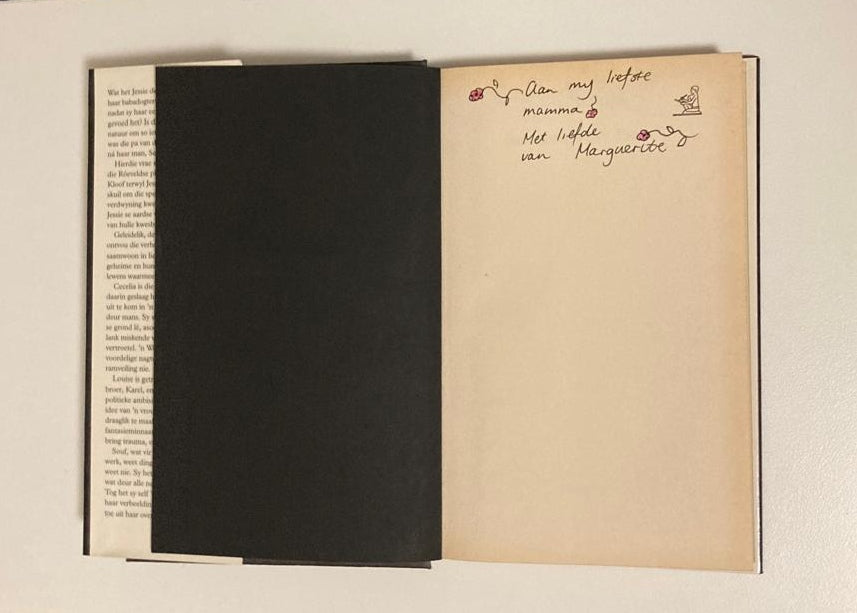 Wat het Jessie
haar
nadat sy haar
gevoed het? Is
natuur om so
was die pa van
ná haar man,
Hierdie vrae
die Roeveldse
Kloof terwyl
skuil om die
verdwyning
Jessie se aardse
van hulle
Geleidelik,
ontvou die
saamwoon in
geheime en
lewens
Cecelia is die
daarin geslaag
uit te kom in
deur mans. Sy
se grond lê,
lank miskende
vertroetel. 'n
voordelige
ramveiling nie.
Louise is
broer, Karel, en
politieke
idee van 'n
draaglik te
fantasieminnaar
bring trauma,
Souf, wat vir
werk, weet
weet nie. Sy het
wat deur alle
Tog het sy self
haar
toe uit haar
Aan my liefste
mamma
Met liefde
van Marguerite